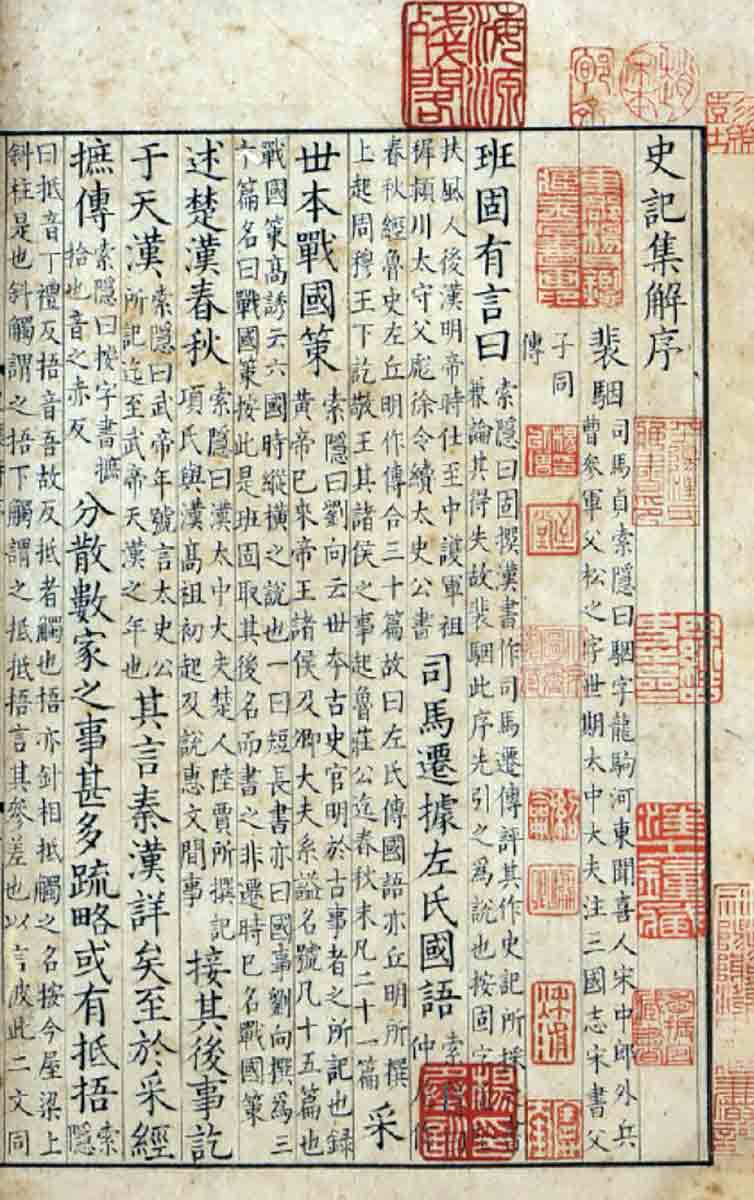 海源殘閣
史記集解序
裴駰
司馬貞索隱曰駰字龍駒河東聞喜人宋中郎外兵
曹參軍父松之字世期太中大夫注三國志宋書父
子同
傳
班固有言曰
索隱曰固撰漢書作司馬遷傳評其作史記所採書
兼論其得失故裴駰此序先引之爲說也按固字
扶風人後漢明帝時仕至中護軍祖
穉潁川太守父彪徐令續太史公書
司馬遷據左氏國語
索
仲
春秋經魯史左丘明作傳合三十篇故曰左氏傳國語亦丘明所撰
上起周穆王下訖敬王其諸侯之事起魯莊公迄春秋末凡二十一篇
采
丗本戰國策
索隱曰劉向云丗本古史官明於古事者之所記也録
黃帝已來帝王諸侯及卿大夫系謚名號凡十五篇也
戰國策高誘云六國時縱橫之說也一曰短長書亦曰國事劉向撰爲三
十篇名曰戰國策按此是班固取其後名而書之非遷時已名戰國策
述楚漢春秋
索隱曰漢太中大夫楚人陸賈所撰記
項氏與漢高祖初起及說惠文間事
接其後事訖
于天漢
索隱曰武帝年號言太史公
所記迄至武帝天漢之年也
其言秦漢詳矣至於采經
摭傳
索隱曰按字書摭
拾也音之赤反
分散數家之事甚多疏略或有抵捂
索
隱
曰抵音丁禮反捂音吾故反抵者觸也捂亦斜相抵觸之名按今屋梁上
斜柱是也斜觸謂之捂下觸謂之抵抵捂言其參差也以言彼此二文同